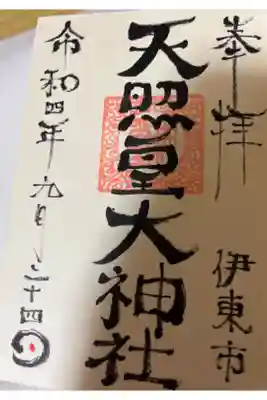 奉拝
伊東市
天照皇大神社
令和四年九月二十四日